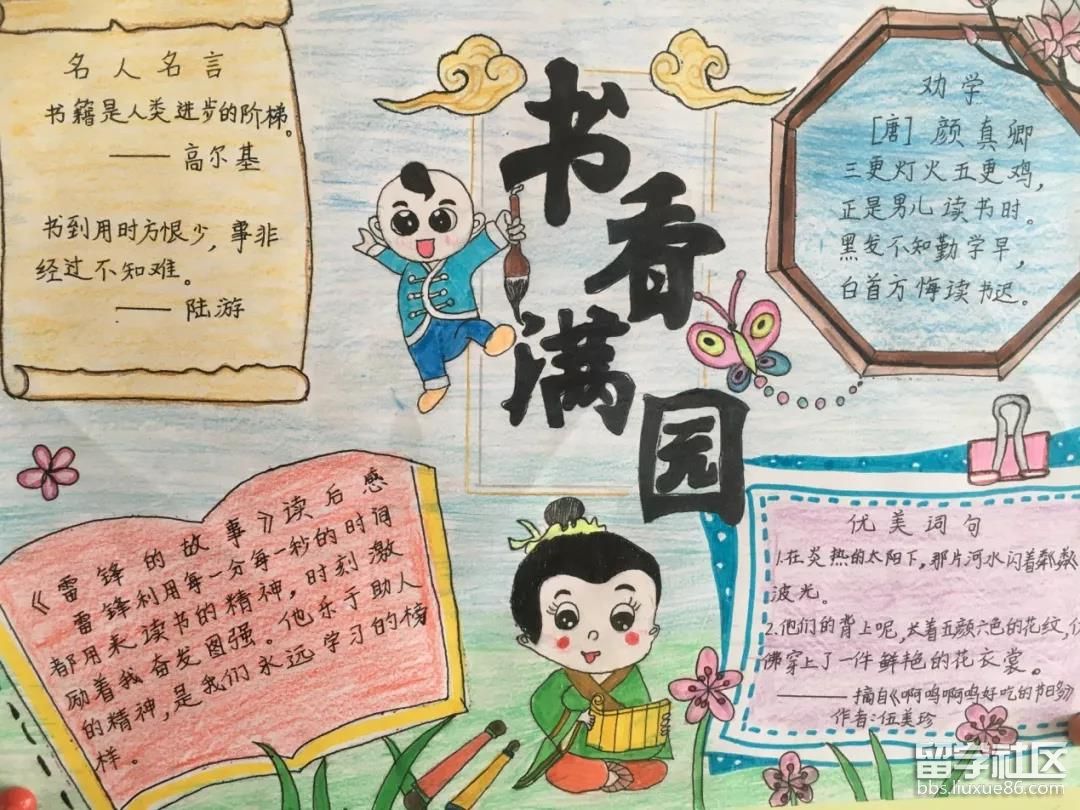 名人名言
书籍是人类进步的阶梯。
——高尔基
书到用时方恨少，事非
经过不知难。
——陆游
书香满园
劝学
[唐]颜真卿
三更灯火五更鸡，
正是男儿读书时。
黑发不知勤学早，
白首方悔读书迟。
《雷锋的故事》读后感
雷锋利用每一分每一秒的时间
都用来读书的精神，时刻激
励着我奋发图强。他乐于助人
的精神，是我们永远学习的榜
样。
优美词句
1.在炎热的太阳下，那片河水闪着粼粼
波光。
2.他们的背上呢，长着五颜六色的花纹，仿
佛穿上了一件鲜艳的花衣裳。
——摘自《啊呜啊呜好吃的节日》
作者:伍美珍
留学社区
bbs.liuxue86.com